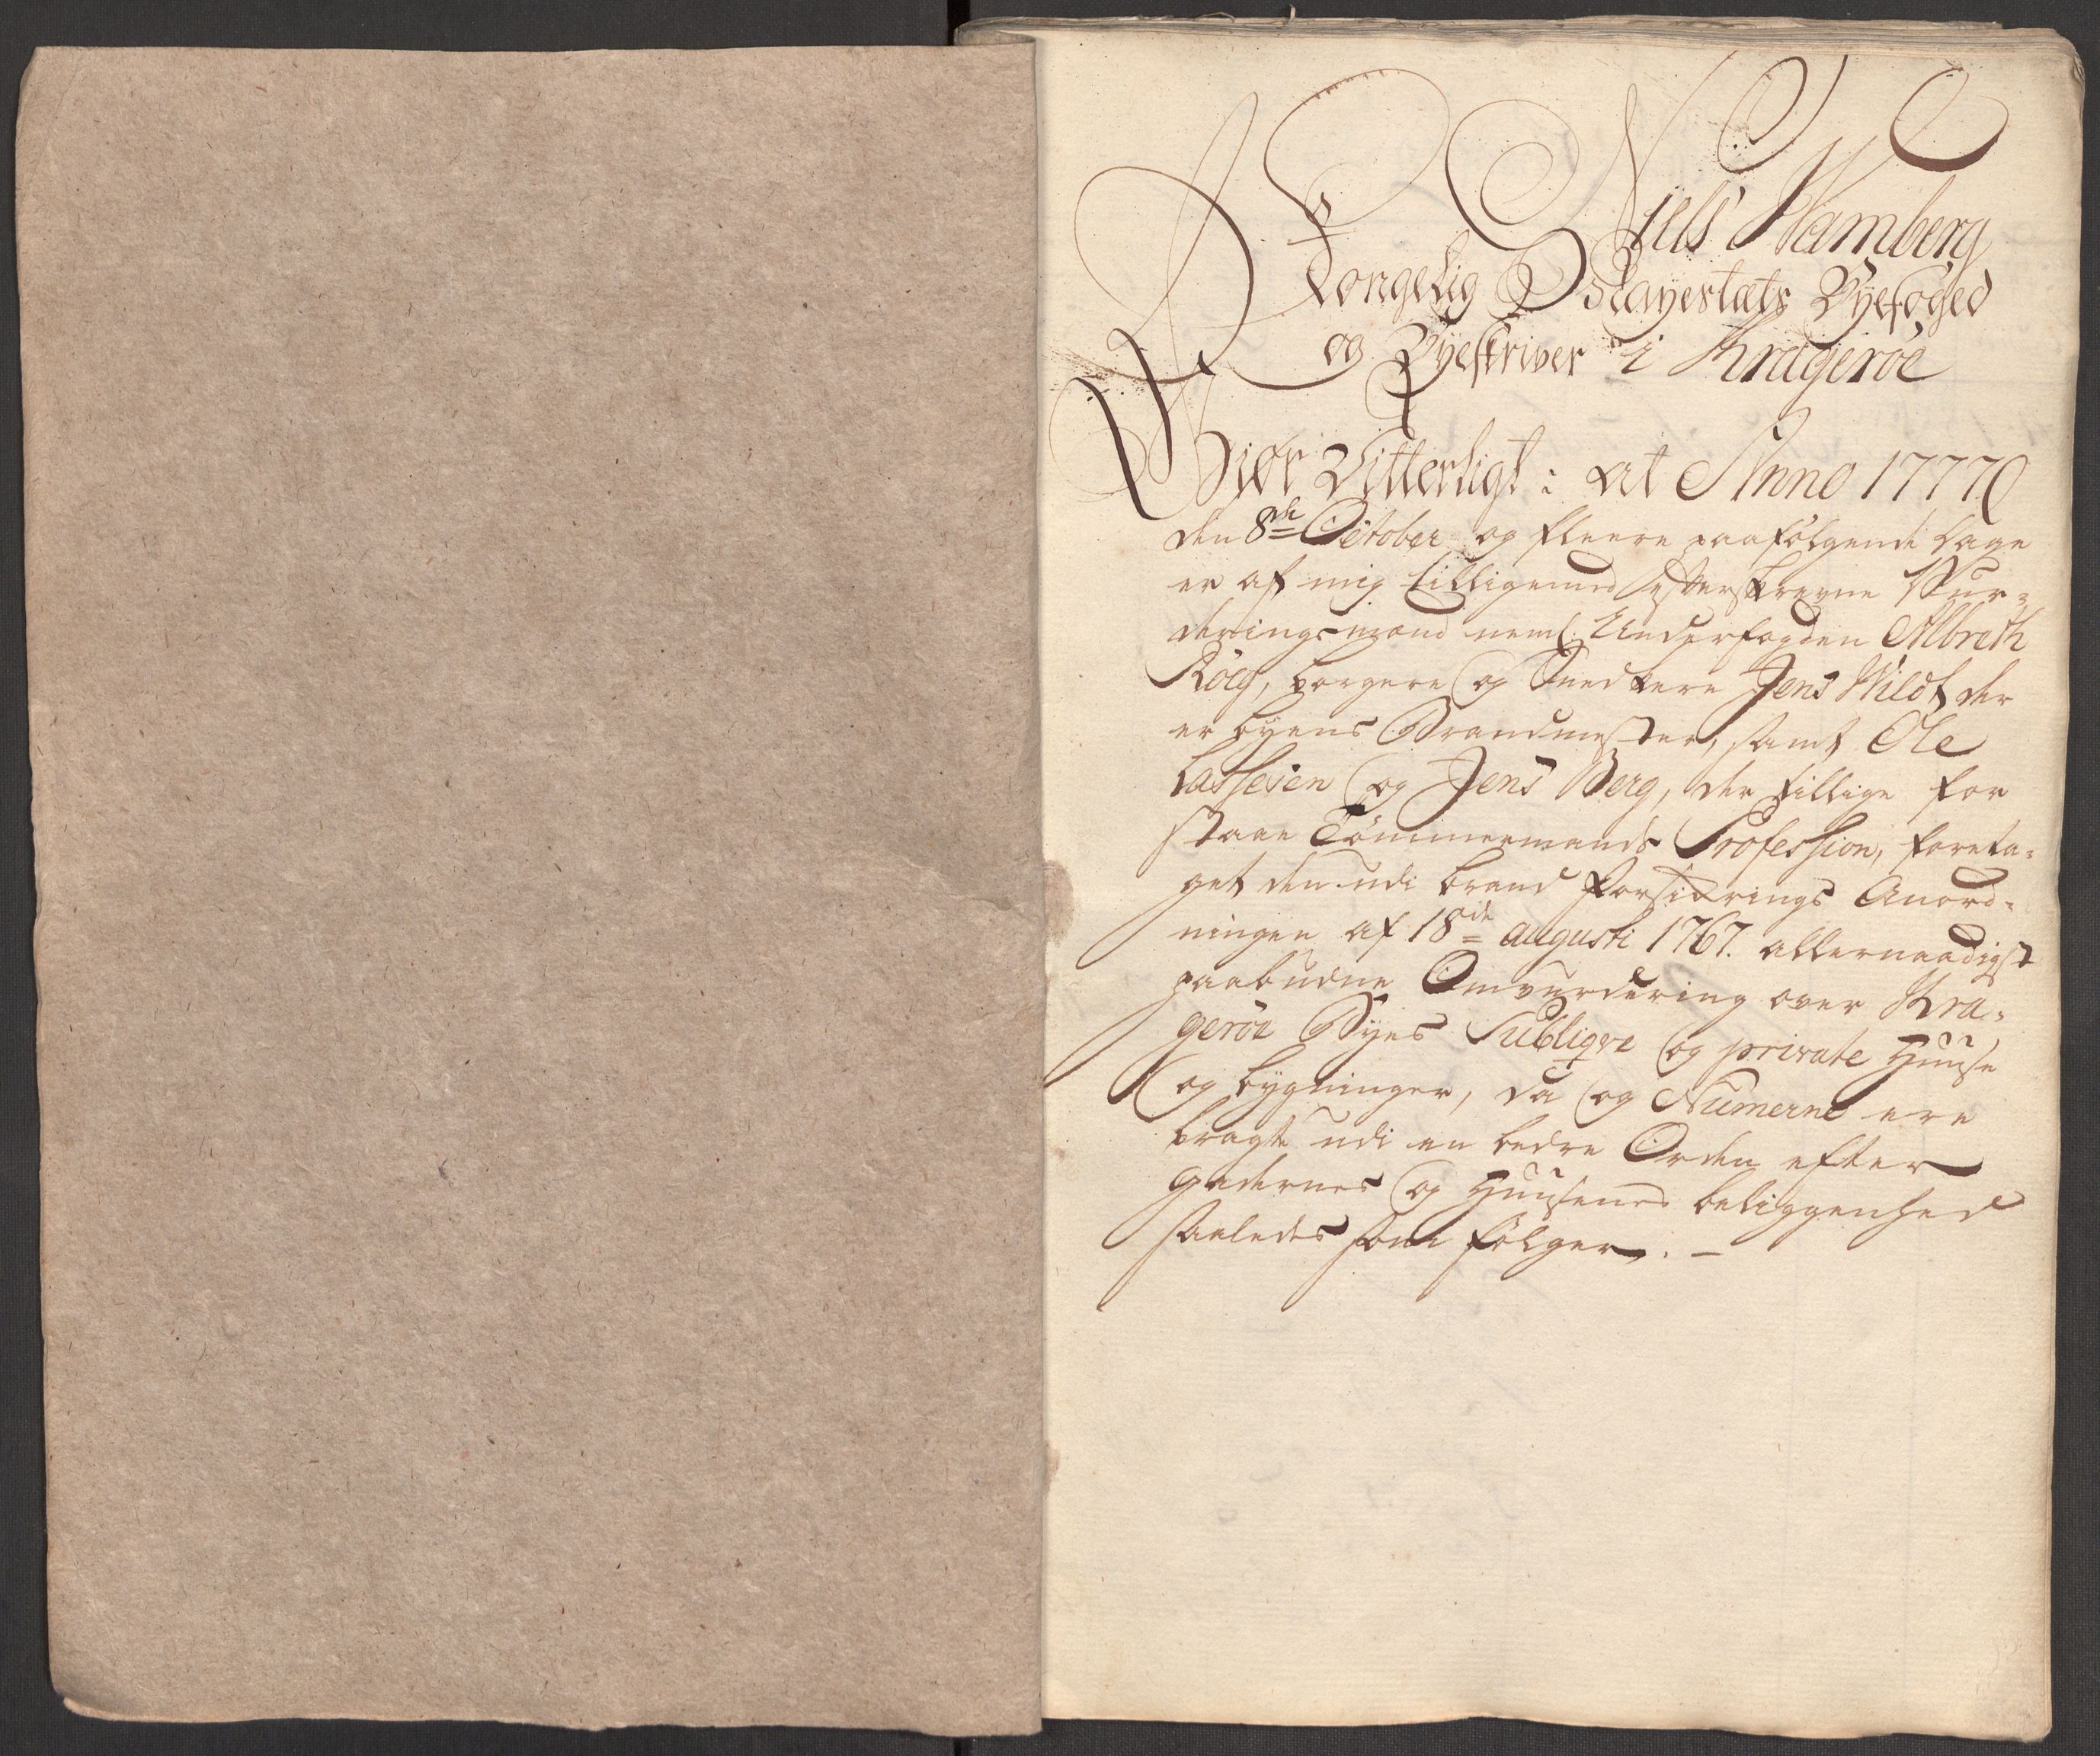 Niels Hamberg
Kongelig Mayestæts Byefoged
og Byeskriver i Krageröe
Giör Vitterligt: at Anno 1777
den 8de October og fleere paafölgende dage
er af mig tilligemed efterskrevne Vur-
deringsmænd neml: Underfogden Albreth
borgere og Snedkere Jens Wildt der
er byens Brandmester, samt Ole
Lassesen og Jens Berg, der tillige for
staae Tömmermands Profession, foreta-
get den udi brand forsikrings Anord-
ningen af 18de augusti 1767. allernaadigst
paabudne Omvurdering over Kra-
geröe Byes Publiqve og private Huuse
og bygninger, da og Numerne ere
bragte udi en bedre Orden efter
gadernes og Huusenes beliggenhed
saaledes som fölger. -